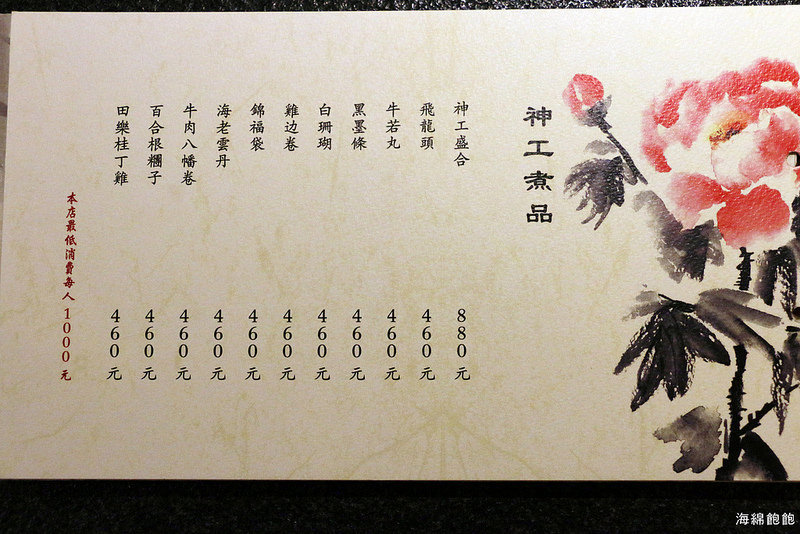 神工煮品
神工盛合 880元
飛龍頭 460元
牛若丸 460元
黑墨條 460元
白珊瑚 460元
雞边卷 460元
錦福袋 460元
海老雲丹 460元
牛肉八幡卷 460元
百合根糰子 460元
田樂桂丁雞 460元
本店最低消費每人1000元
海綿飽飽